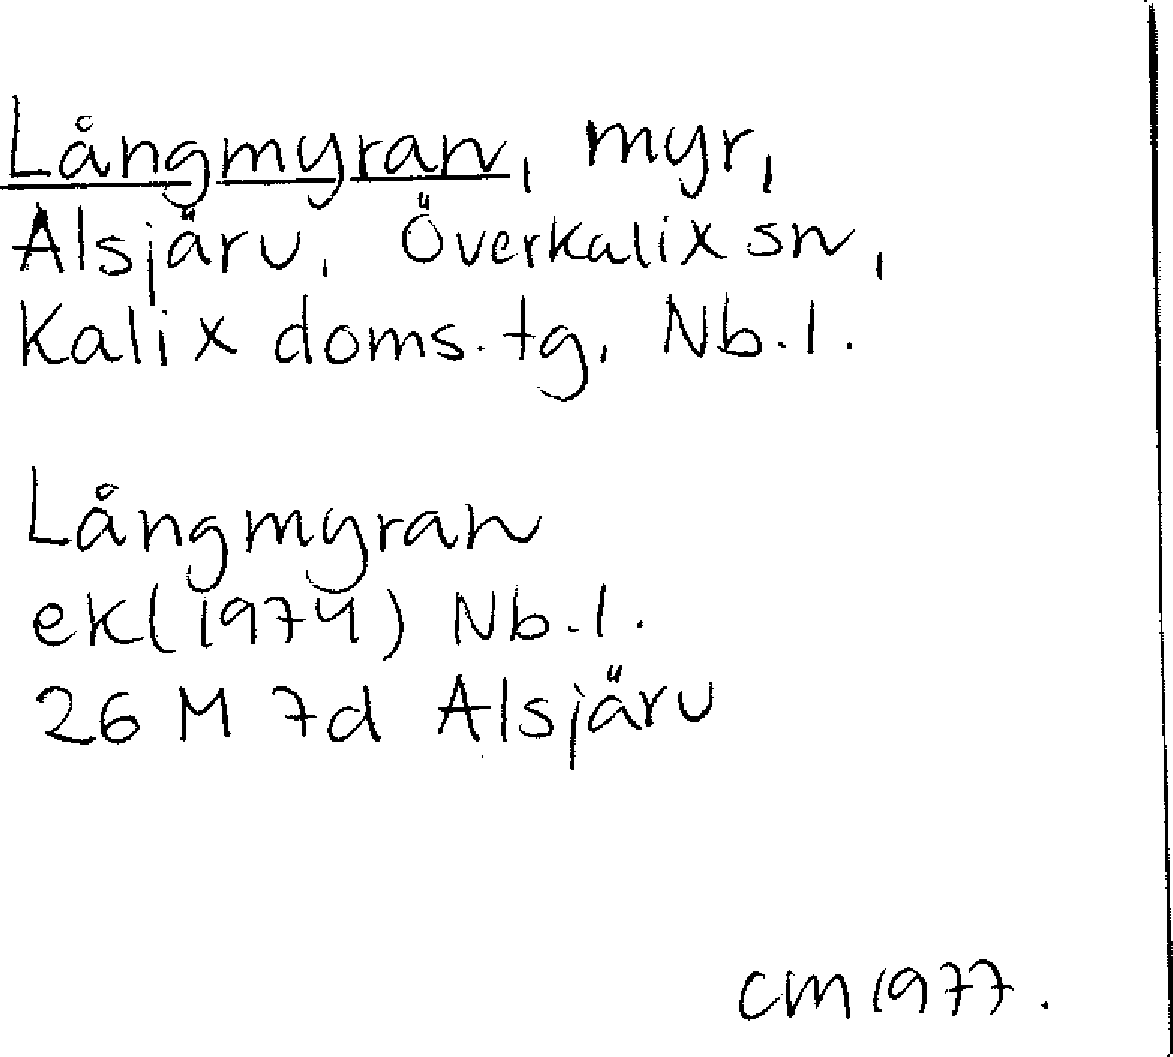 Långmyran, myr,
Alsjärv, Överkalix sn,
Kalix doms. tg, Nb. l.
Långmyran
ek(1974) Nb. l.
26 M 7d Alsjärv
CM 1977.